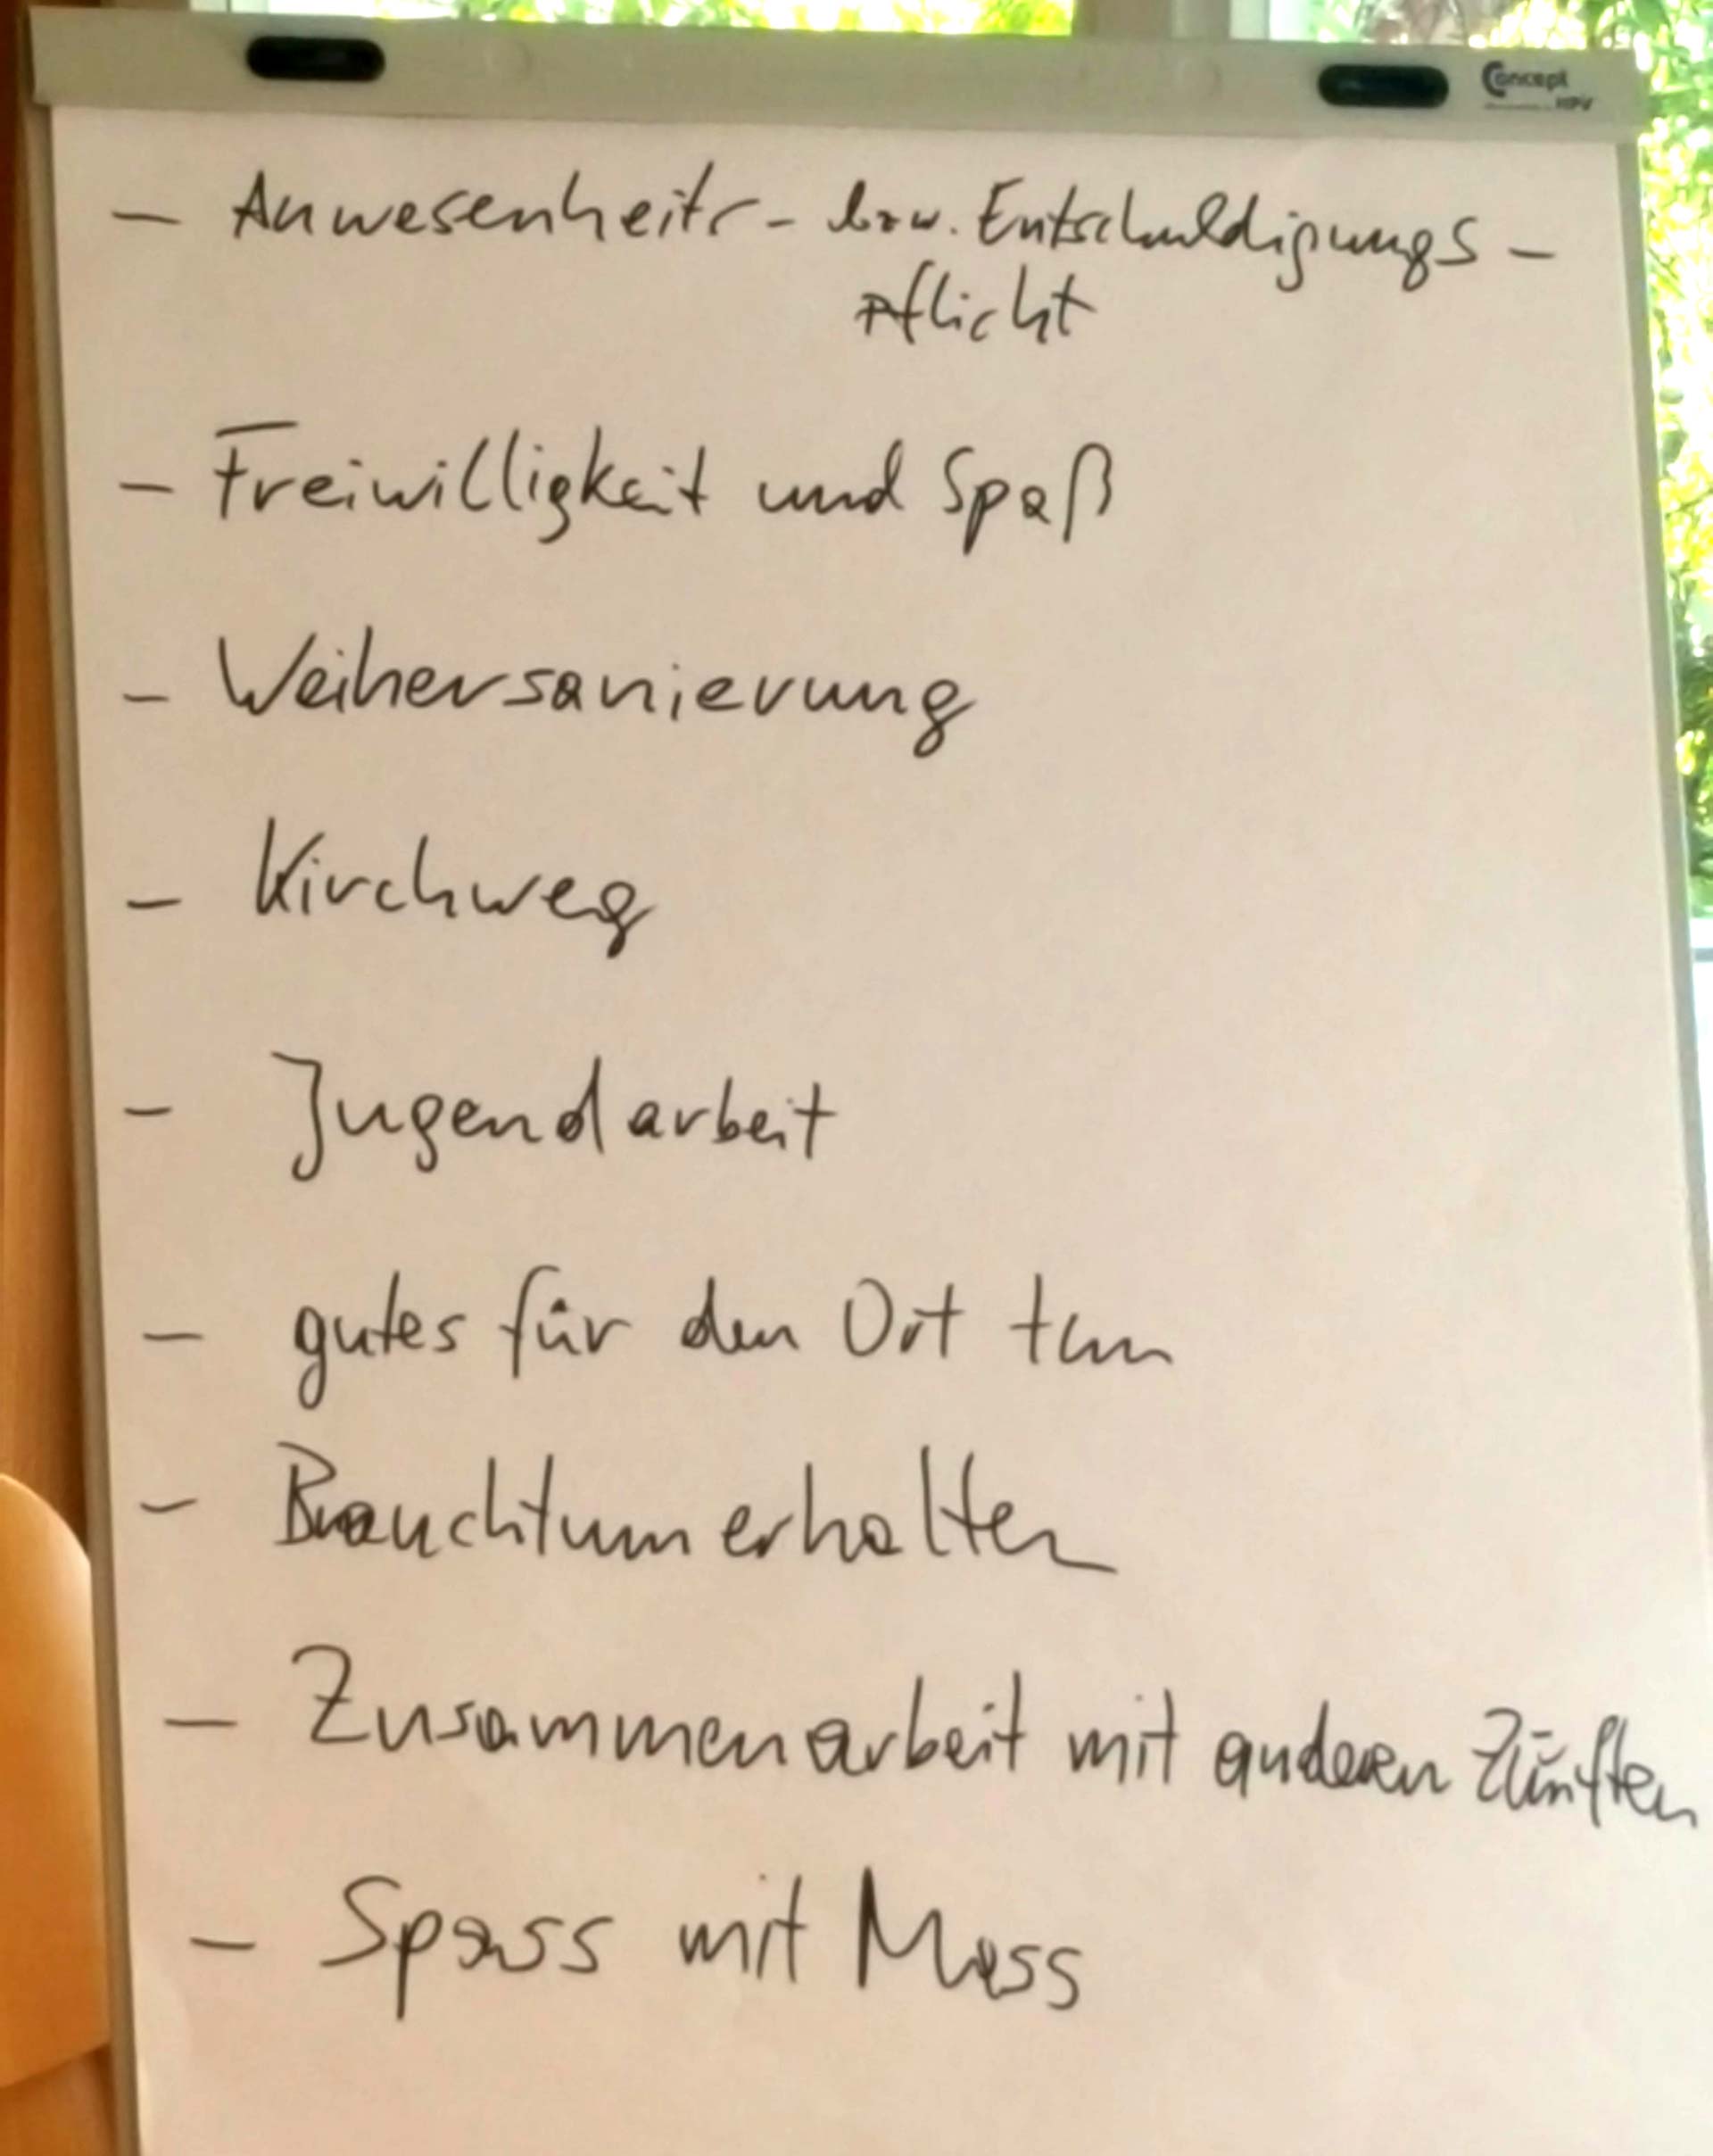 Concept
- Anwesenheits- bzw. Entschuldigungs-
pflicht
- Freiwilligkeit und Spaß
- Weihersanierung
- Kirchweg
- Jugendarbeit
- gutes für den Ort tun
- Brauchtum erhalten
- Zusammenarbeit mit anderen Zünften
- Spass mit Mass